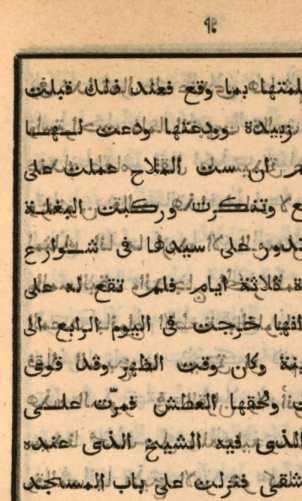 ٩٤
علمتها بما وقع فعند ذلك قبلت
زبيدة وودعتها ودعت لها
ان ست الملاح عملت على
وتفكرت وركبت البغلة
تدور على سيدها فى شوارع
ثلاثة ايام فلم تقع له على
خرجت فى اليوم الرابع الى
وكان وقت الظهر وقد قوى
ولحقها العطش فمرّت على
الذى فيه الشيخ الذى عنده
فنزلت على باب المسجد